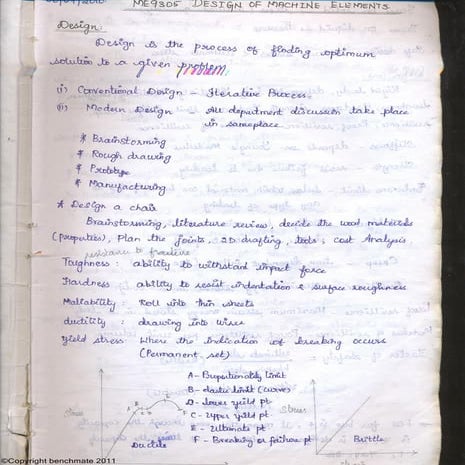 ME9305 DESIGN OF MACHINE ELEMENTS
Design:
Design is the process of finding optimum
solution to a given problem
(i) Conventional Design - Iterative Process
(ii) Modern Design - All department discussion take place
in sameplace
* Brainstorming
* Rough drawing
* Prototype
* Manufacturing
* Design a chair
Brainstorming, literature review, decide the used materials
(properties), Plan the joints, 2D drafting, tests, cost Analysis
resistance to fracture
Toughness : ability to withstand impact force
Hardness : ability to resist indentation & surface roughness
Maliability : Roll into thin sheets
ductility : drawing into wires
Yield stress : Where the indication of breaking occurs
(Permanent set)
A - Proportionality limit
B - elastic limit (curve)
D - lower yield pt
C - Upper yield pt
E - Ultimate pt
F - Breaking or failure pt
Stress
Ductile
Stress
Brittle
©Copyright benchmate 2011